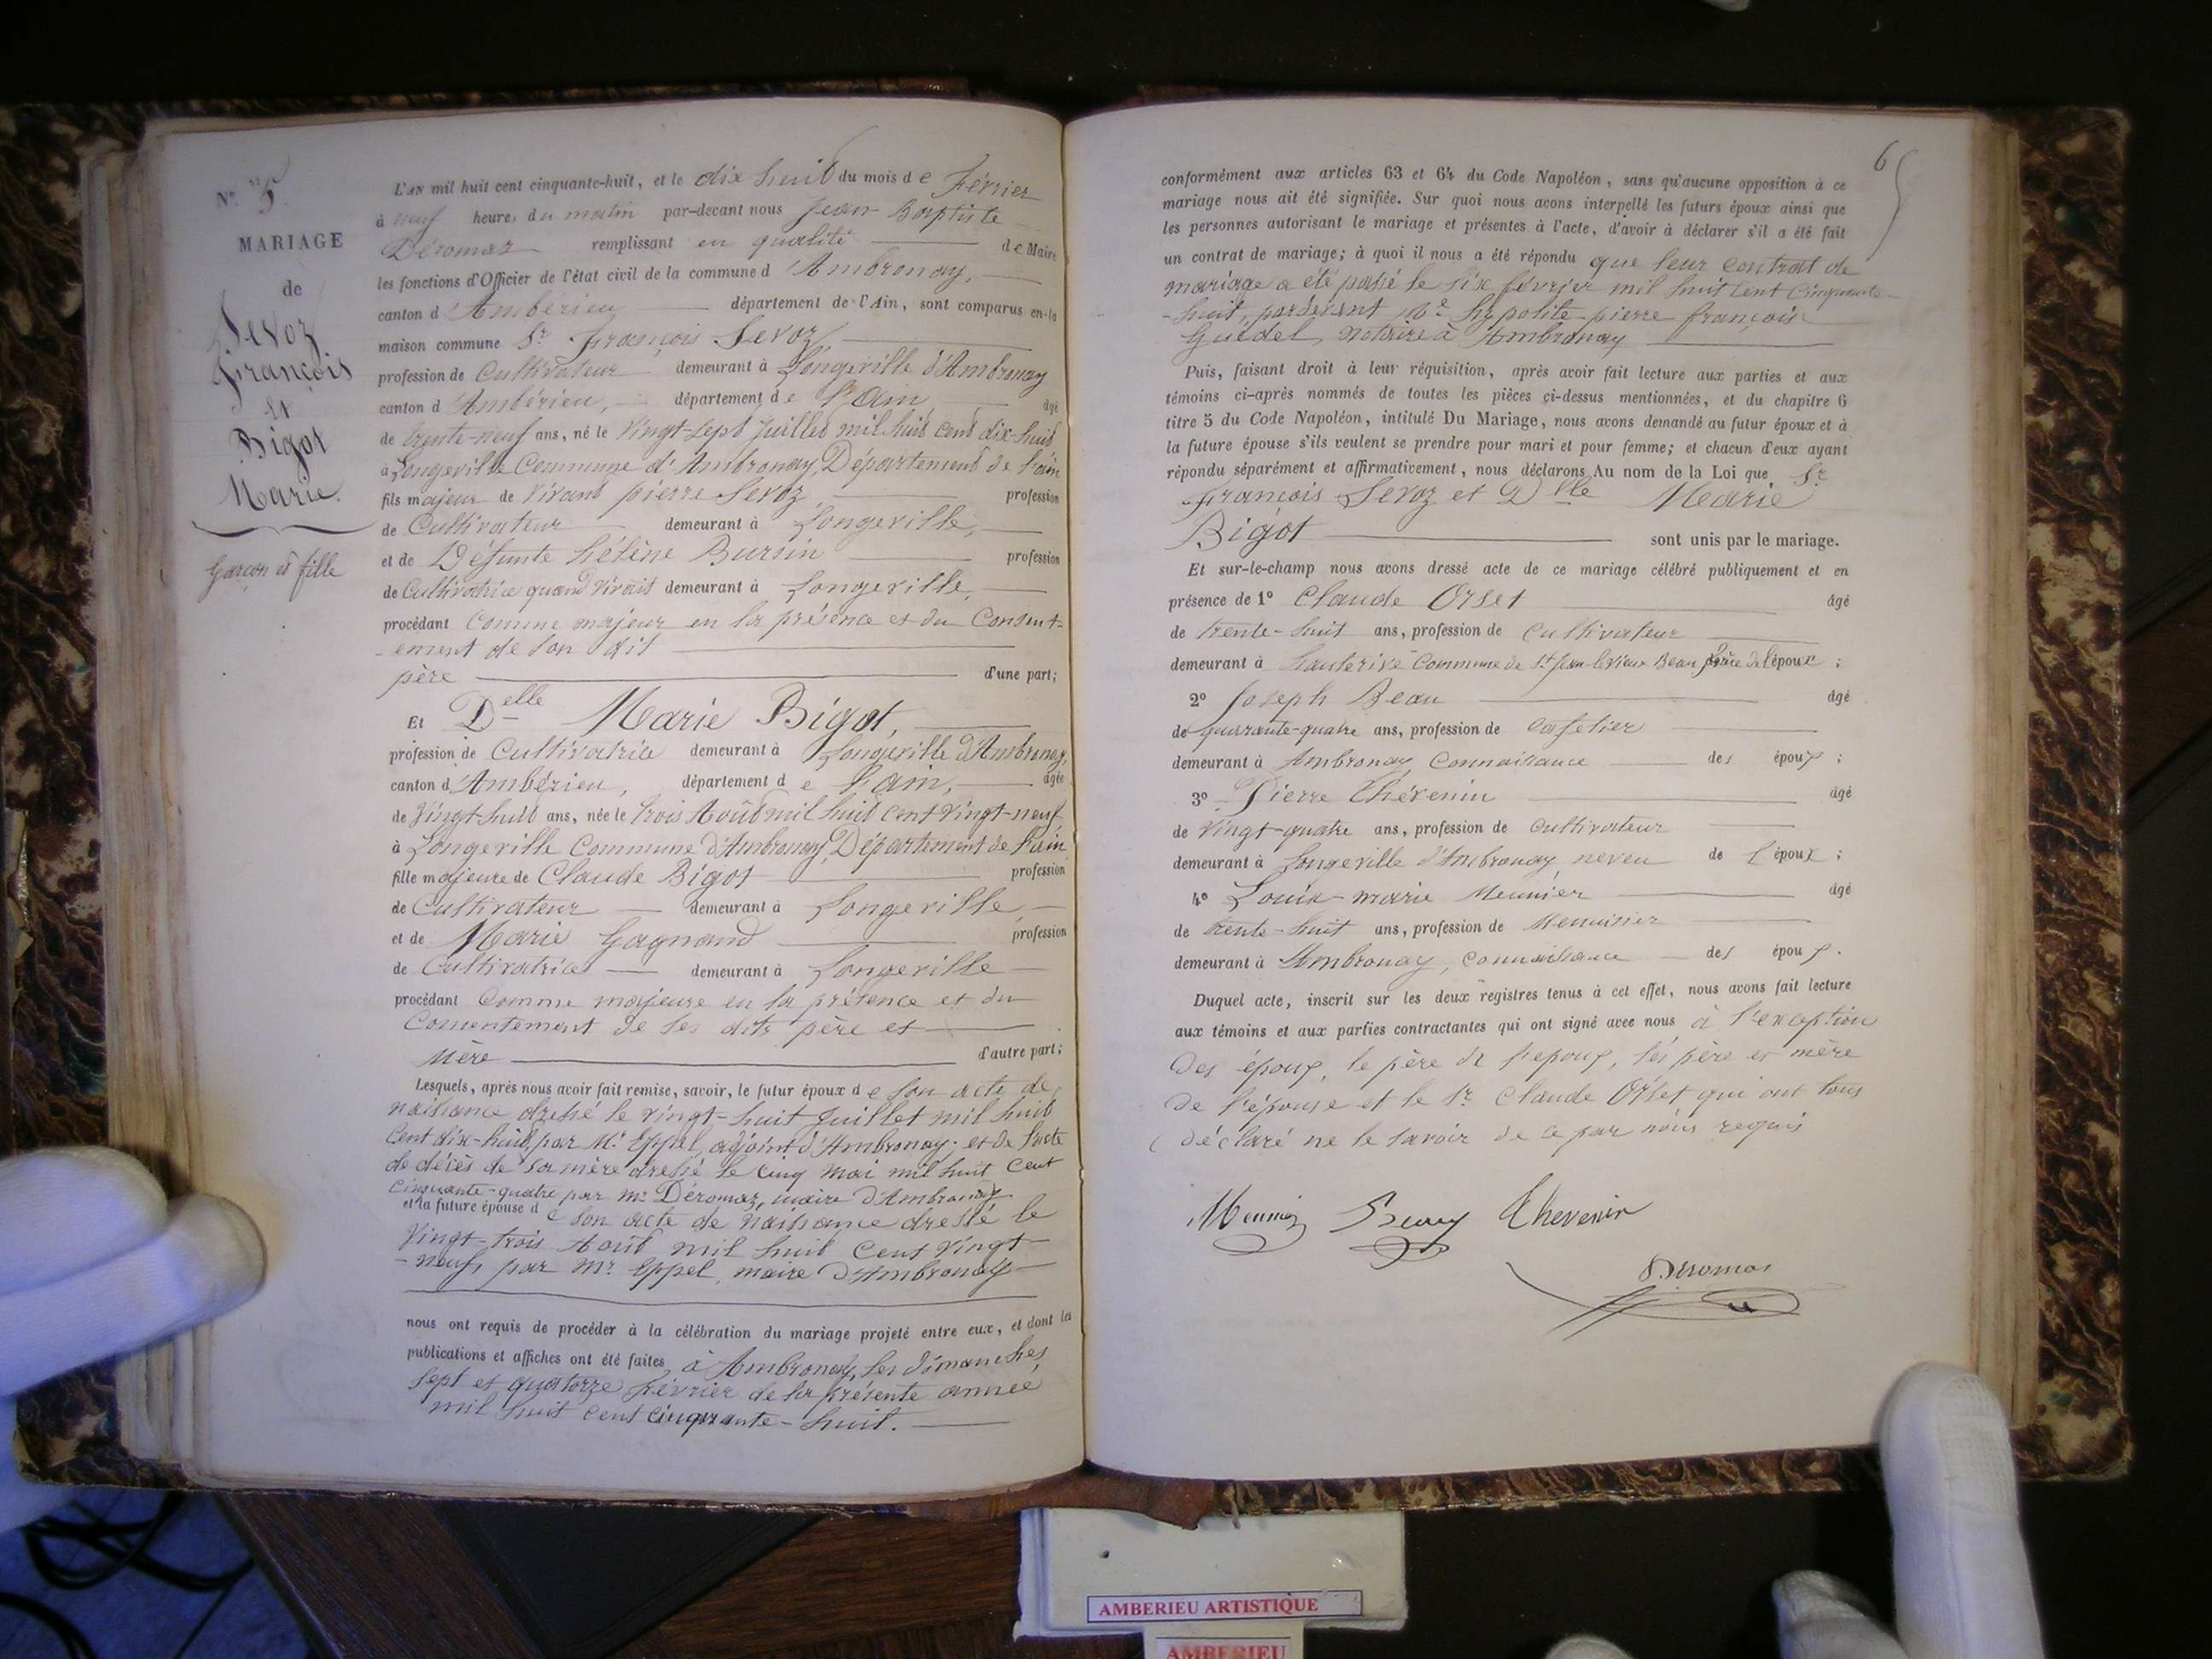 N° 5.
MARIAGE
de
Sevoz
François
et
Bigot
Marie.
Garçon et fille
L'AN mil huit cent cinquante-huit, et le dix huit du mois de Février
à neuf heures du matin par-devant nous Jean Baptiste
Déromas remplissant en qualité de Maire
les fonctions d'Officier de l'état civil de la commune d'Ambronay,
canton d'Ambérieu département de l'Ain, sont comparus en la
maison commune Sr François Sevoz,
profession de Cultivateur demeurant à Longeville d'Ambronay
canton d'Ambérieu, département de l'Ain âgé
de trente-neuf ans, né le Vingt-sept Juillet mil huit cent dix-huit
à Longeville Commune d'Ambronay, Département de l'ain
fils majeur de Vivant pierre Sevoz profession
de Cultivateur demeurant à Longeville,
et de Défunte hélène Bursin profession
de Cultivatrice quand Vivait demeurant à Longeville,
procédant Comme majeur en la présence et du Consent-
-ement de son dit
père d'une part;
Et Delle Marie Bigot,
profession de Cultivatrice demeurant à Longeville d'Ambronay,
canton d'Ambérieu, département de l'ain, âgée
de Vingt-huit ans, née le trois Août mil huit cent Vingt-neuf
à Longeville Commune d'Ambronay, Département de l'ain
fille majeure de Claude Bigot profession
de Cultivateur demeurant à Longeville
et de Marie Gagnand profession
de Cultivatrice demeurant à Longeville
procédant Comme majeure en la présence et du
Consentement de ses dits père et
Mère d'autre part;
Lesquels, après nous avoir fait remise, savoir, le futur époux de son acte de
naissance dressé le Vingt-huit Juillet mil huit
Cent dix-huit, par Mr Eppel, adjoint d'Ambronay; et de l'acte
de décès de sa mère dressé le cinq mai mil huit Cent
Cinquante-quatre par mr Déromas, maire d'Ambronay
et la future épouse de son acte de naissance dressé le
Vingt-trois Août mil huit Cent Vingt-
-neuf, par Mr. Eppel, maire d'Ambronay
nous ont requis de procéder à la célébration du mariage projeté entre eux, et dont les
publications et affiches ont été faites à Ambronay, les dimanches
sept et quatorze Février de la présente année
mil huit cent cinquante-huit.
6
conformément aux articles 63 et 64 du Code Napoléon, sans qu'aucune opposition à ce
mariage nous ait été signifiée. Sur quoi nous avons interpellé les futurs époux ainsi que
les personnes autorisant le mariage et présentes à l'acte, d'avoir à déclarer s'il a été fait
un contrat de mariage; à quoi il nous a été répondu que leur contrat de
mariage a été passé le six février mil huit cent Cinquante-
-huit, pardevant Me hypolite-pierre françois
Guédel, notaire à Ambronay
Puis, faisant droit à leur réquisition, après avoir fait lecture aux parties et aux
témoins ci-après nommés de toutes les pièces ci-dessus mentionnées, et du chapitre 6
titre 5 du Code Napoléon, intitulé Du Mariage, nous avons demandé au futur époux et à
la future épouse s'ils veulent se prendre pour mari et pour femme; et chacun d'eux ayant
répondu séparément et affirmativement, nous déclarons Au nom de la Loi que Sr
François Sevoz et Dlle Marie
Bigot sont unis par le mariage.
Et sur-le-champ nous avons dressé acte de ce mariage célébré publiquement et en
présence de 1° Claude Orset âgé
de trente-huit ans, profession de Cultivateur
demeurant à hauterive Commune de St jean-le Vieux Beau frère de l'époux;
2° Joseph Beau âgé
de quarante-quatre ans, profession de cafetier
demeurant à Ambronay, Connaissance des époux;
3° Pierre Thévenin âgé
de Vingt-quatre ans, profession de Cultivateur
demeurant à Longeville d'Ambronay neveu de l'époux;
4° Louis-marie Meunier âgé
de trente-huit ans, profession de Menuisier
demeurant à Ambronay, connaissance des époux.
Duquel acte, inscrit sur les deux registres tenus à cet effet, nous avons fait lecture
aux témoins et aux parties contractantes qui ont signé avec nous à l'exception
Des époux, le père de l'époux, les père et mère
De l'épouse et le Sr Claude Orset qui ont tous
déclaré ne le savoir de ce par nous requis
Meunier Thevenin
Déromas
AMBERIEU ARTISTIQUE
AMBERIEU